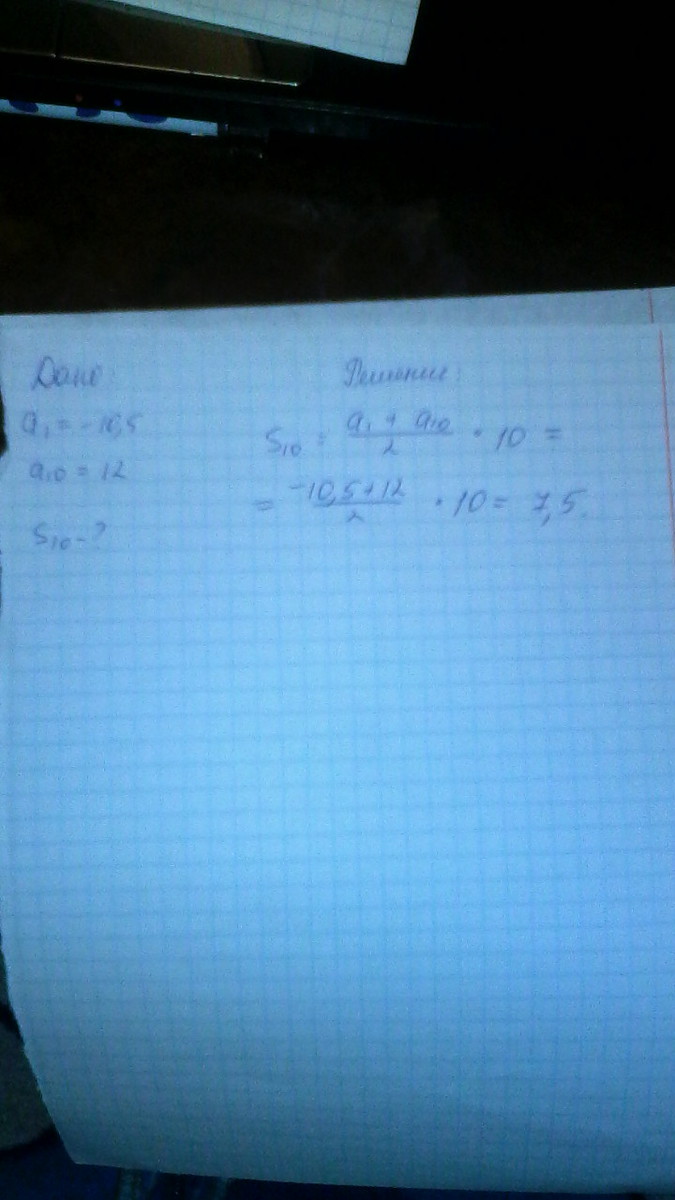 Дано:
a₁ = -10,5
a₁₀ = 12
S₁₀ - ?
Решение:
S₁₀ = (a₁ + a₁₀)/2 · 10 =
= (-10,5+12)/2 · 10 = 7,5.